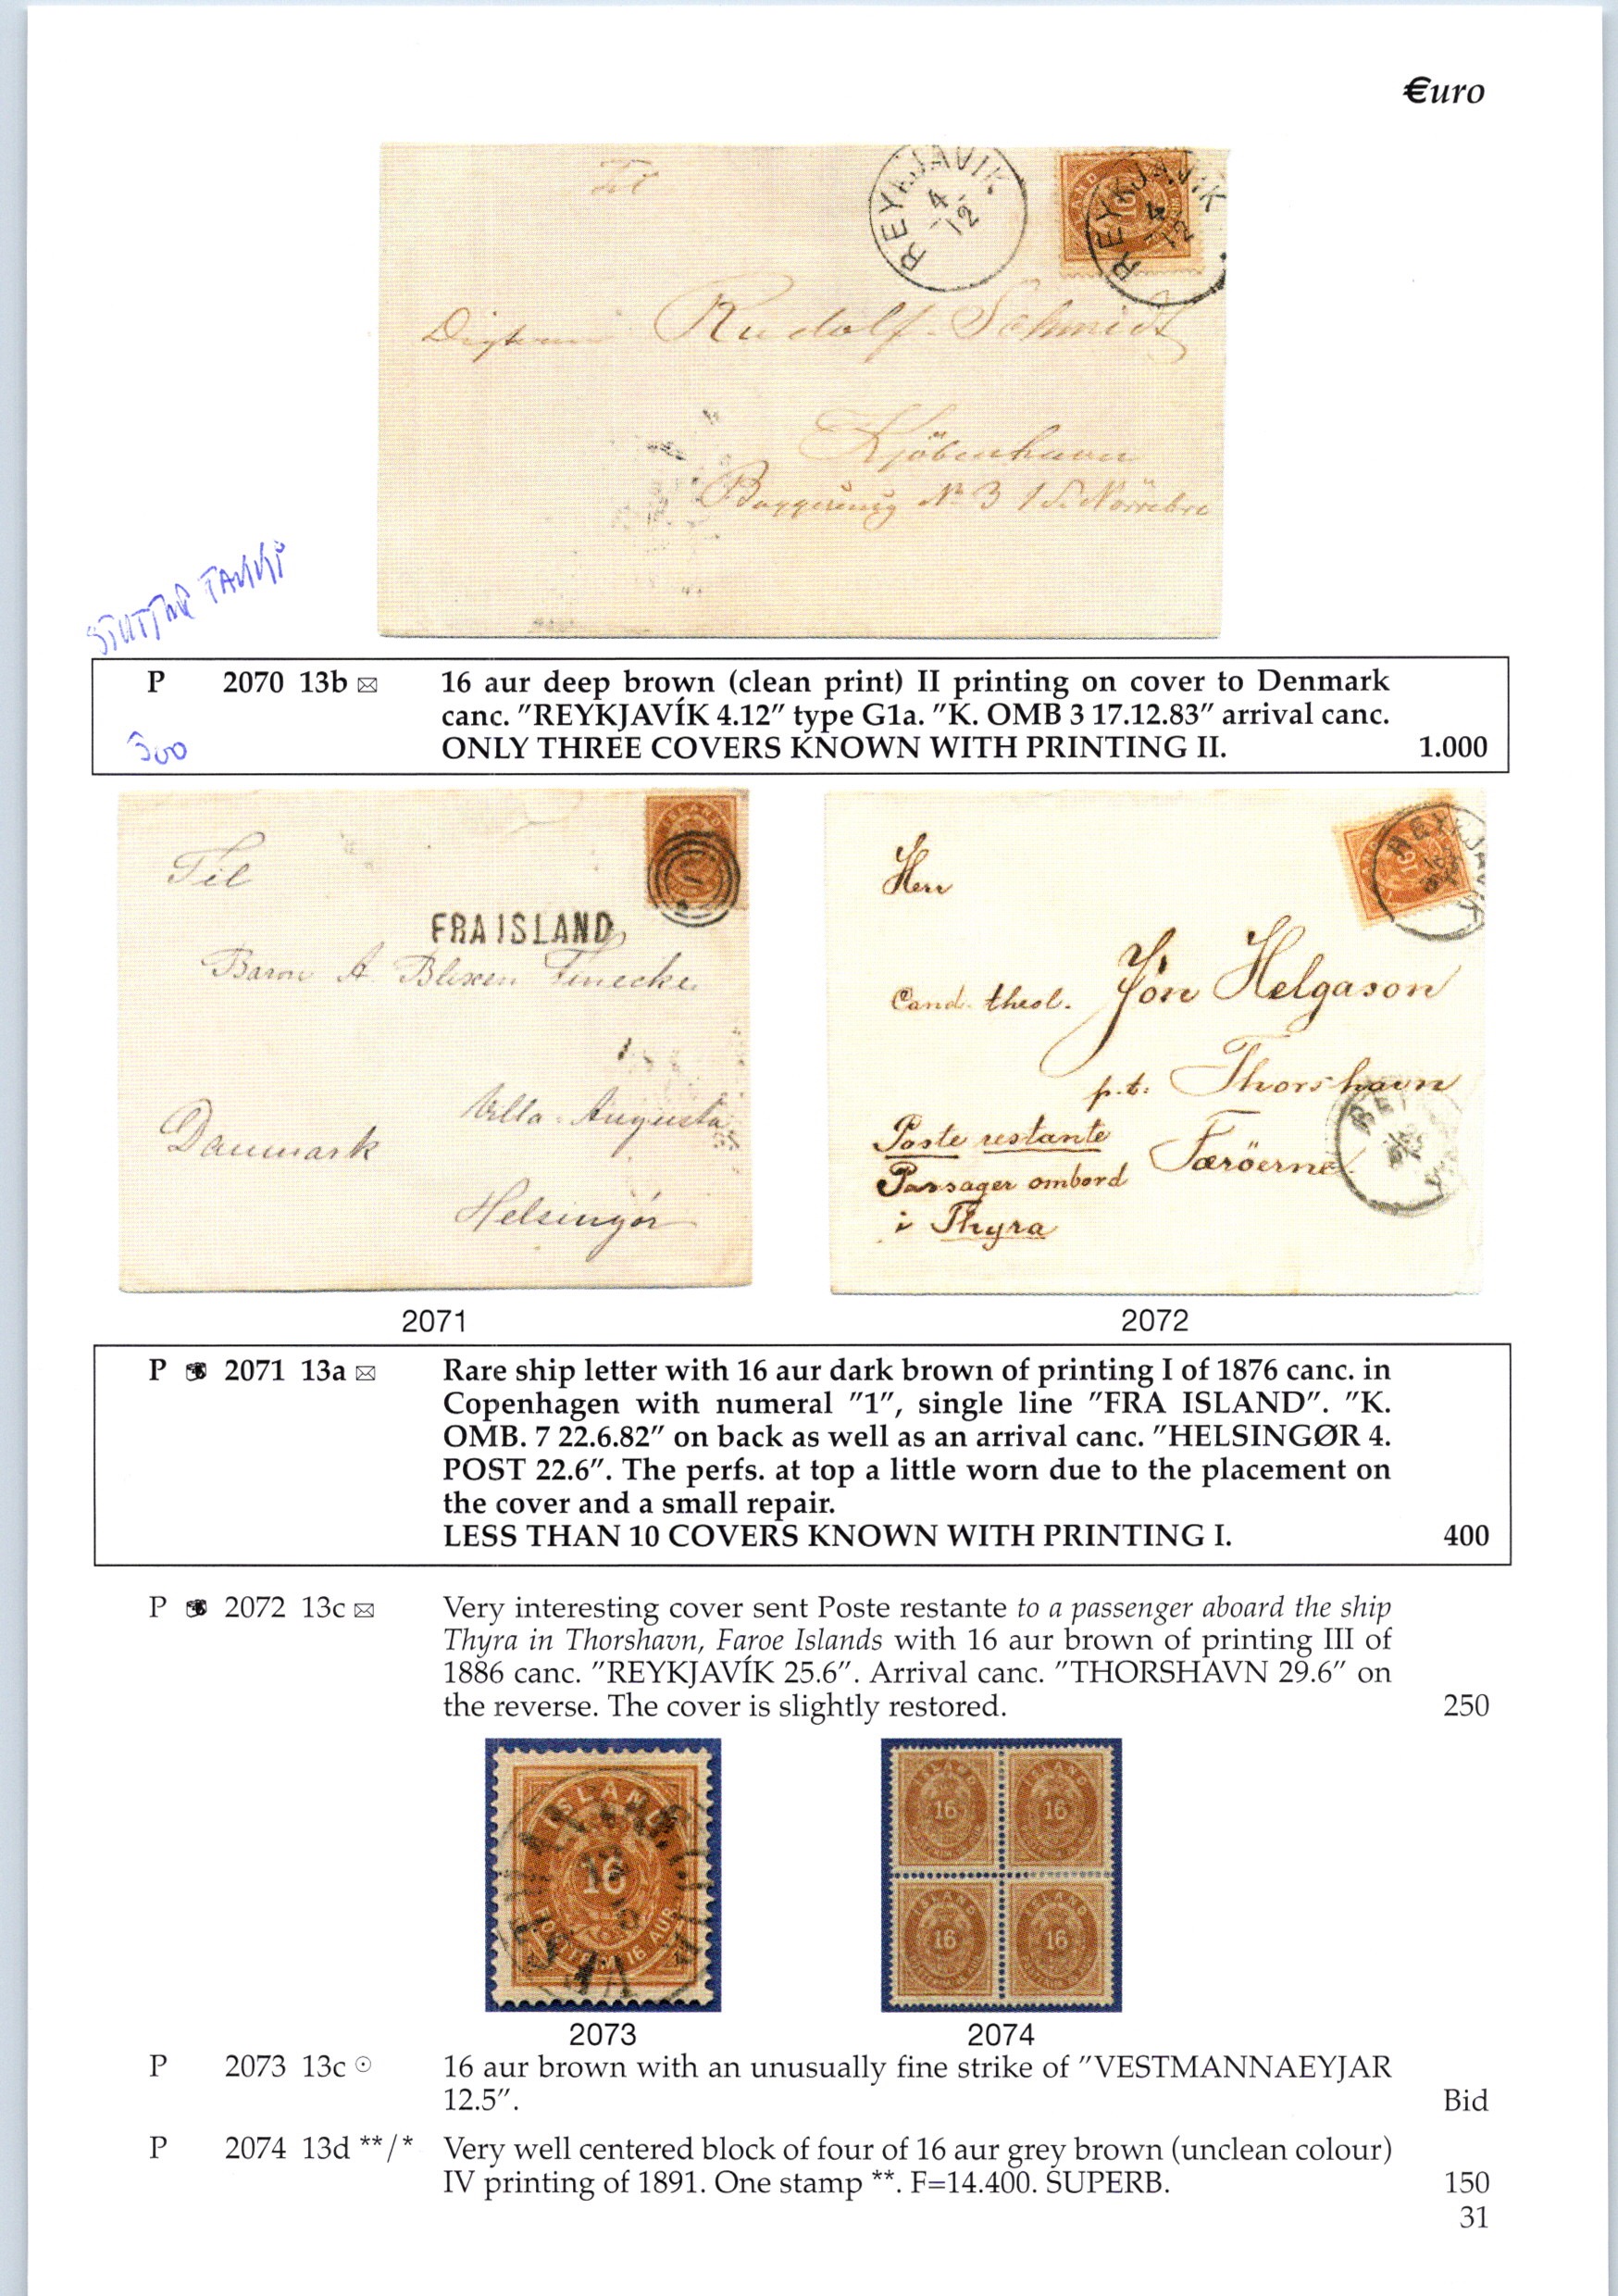 €uro
REYKJAVIK
4
12
REYKJAVIK
4
12
Til
Rudolf Schmidt
Kjöbenhavn
No 3 1 S. Nörrebro
STUTTUR TAKKI
P 2070 13b ✉ 16 aur deep brown (clean print) II printing on cover to Denmark
canc. "REYKJAVÍK 4.12" type G1a. "K. OMB 3 17.12.83" arrival canc.
300 ONLY THREE COVERS KNOWN WITH PRINTING II. 1.000
ISLAND
1
Til
FRA ISLAND
Baron A. Blixen Finecke
Villa Augusta
Danmark
Helsingör
REYKJAVIK
16
Herr
Cand. theol. Jón Helgason
p.t. Thorshavn
Poste restante Færöerne
Passager ombord
i Thyra
2071 2072
P 2071 13a ✉ Rare ship letter with 16 aur dark brown of printing I of 1876 canc. in
Copenhagen with numeral "1", single line "FRA ISLAND". "K.
OMB. 7 22.6.82" on back as well as an arrival canc. "HELSINGØR 4.
POST 22.6". The perfs. at top a little worn due to the placement on
the cover and a small repair.
LESS THAN 10 COVERS KNOWN WITH PRINTING I. 400
P 2072 13c ✉ Very interesting cover sent Poste restante to a passenger aboard the ship
Thyra in Thorshavn, Faroe Islands with 16 aur brown of printing III of
1886 canc. "REYKJAVÍK 25.6". Arrival canc. "THORSHAVN 29.6" on
the reverse. The cover is slightly restored. 250
ISLAND
16
POSTFRIM 16 AUR
ISLAND ISLAND
16 16
ISLAND ISLAND
16 16
2073 2074
P 2073 13c ⊙ 16 aur brown with an unusually fine strike of "VESTMANNAEYJAR
12.5". Bid
P 2074 13d **/* Very well centered block of four of 16 aur grey brown (unclean colour)
IV printing of 1891. One stamp **. F=14.400. SUPERB. 150
31